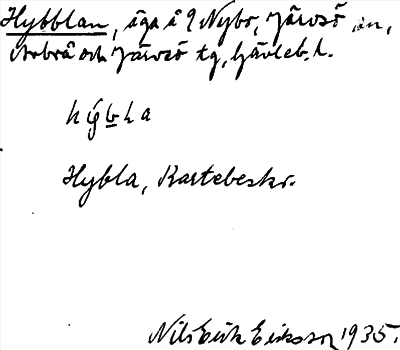 Hybblan, äga å 9 Nybo, Järvsö sn,
Arbrå och Järvsö tg, Gävleb. l.
hýbla
Hybla, Kartebeskr.
Nils Erik Eriksson 1935.